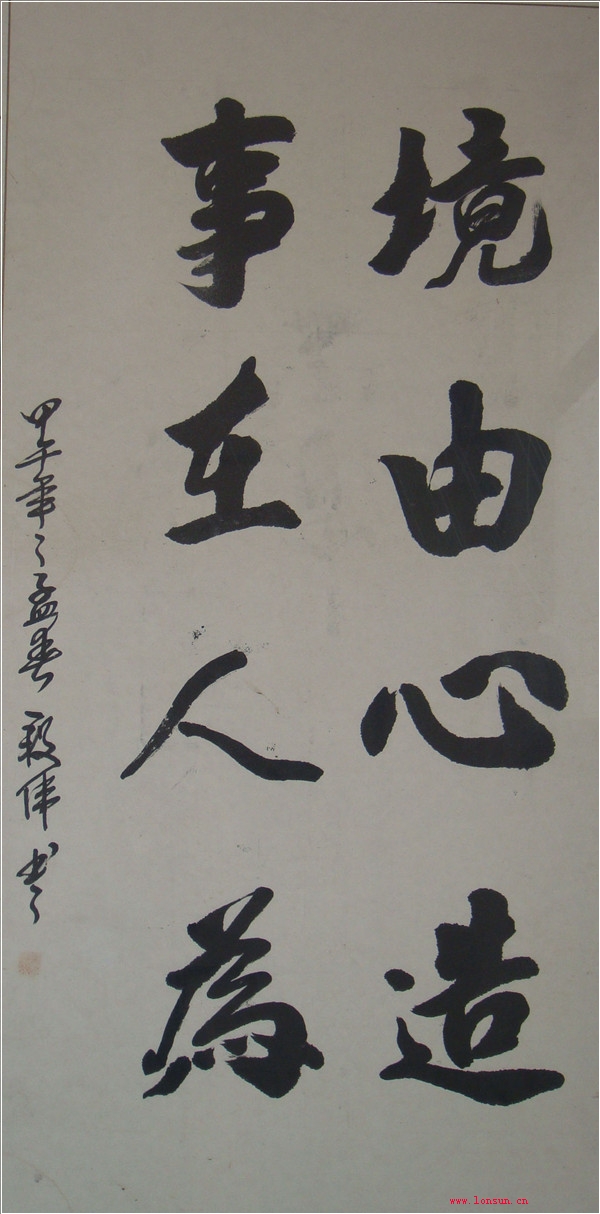 境由心造
事在人為
甲午年之孟春
www.lonsun.cn